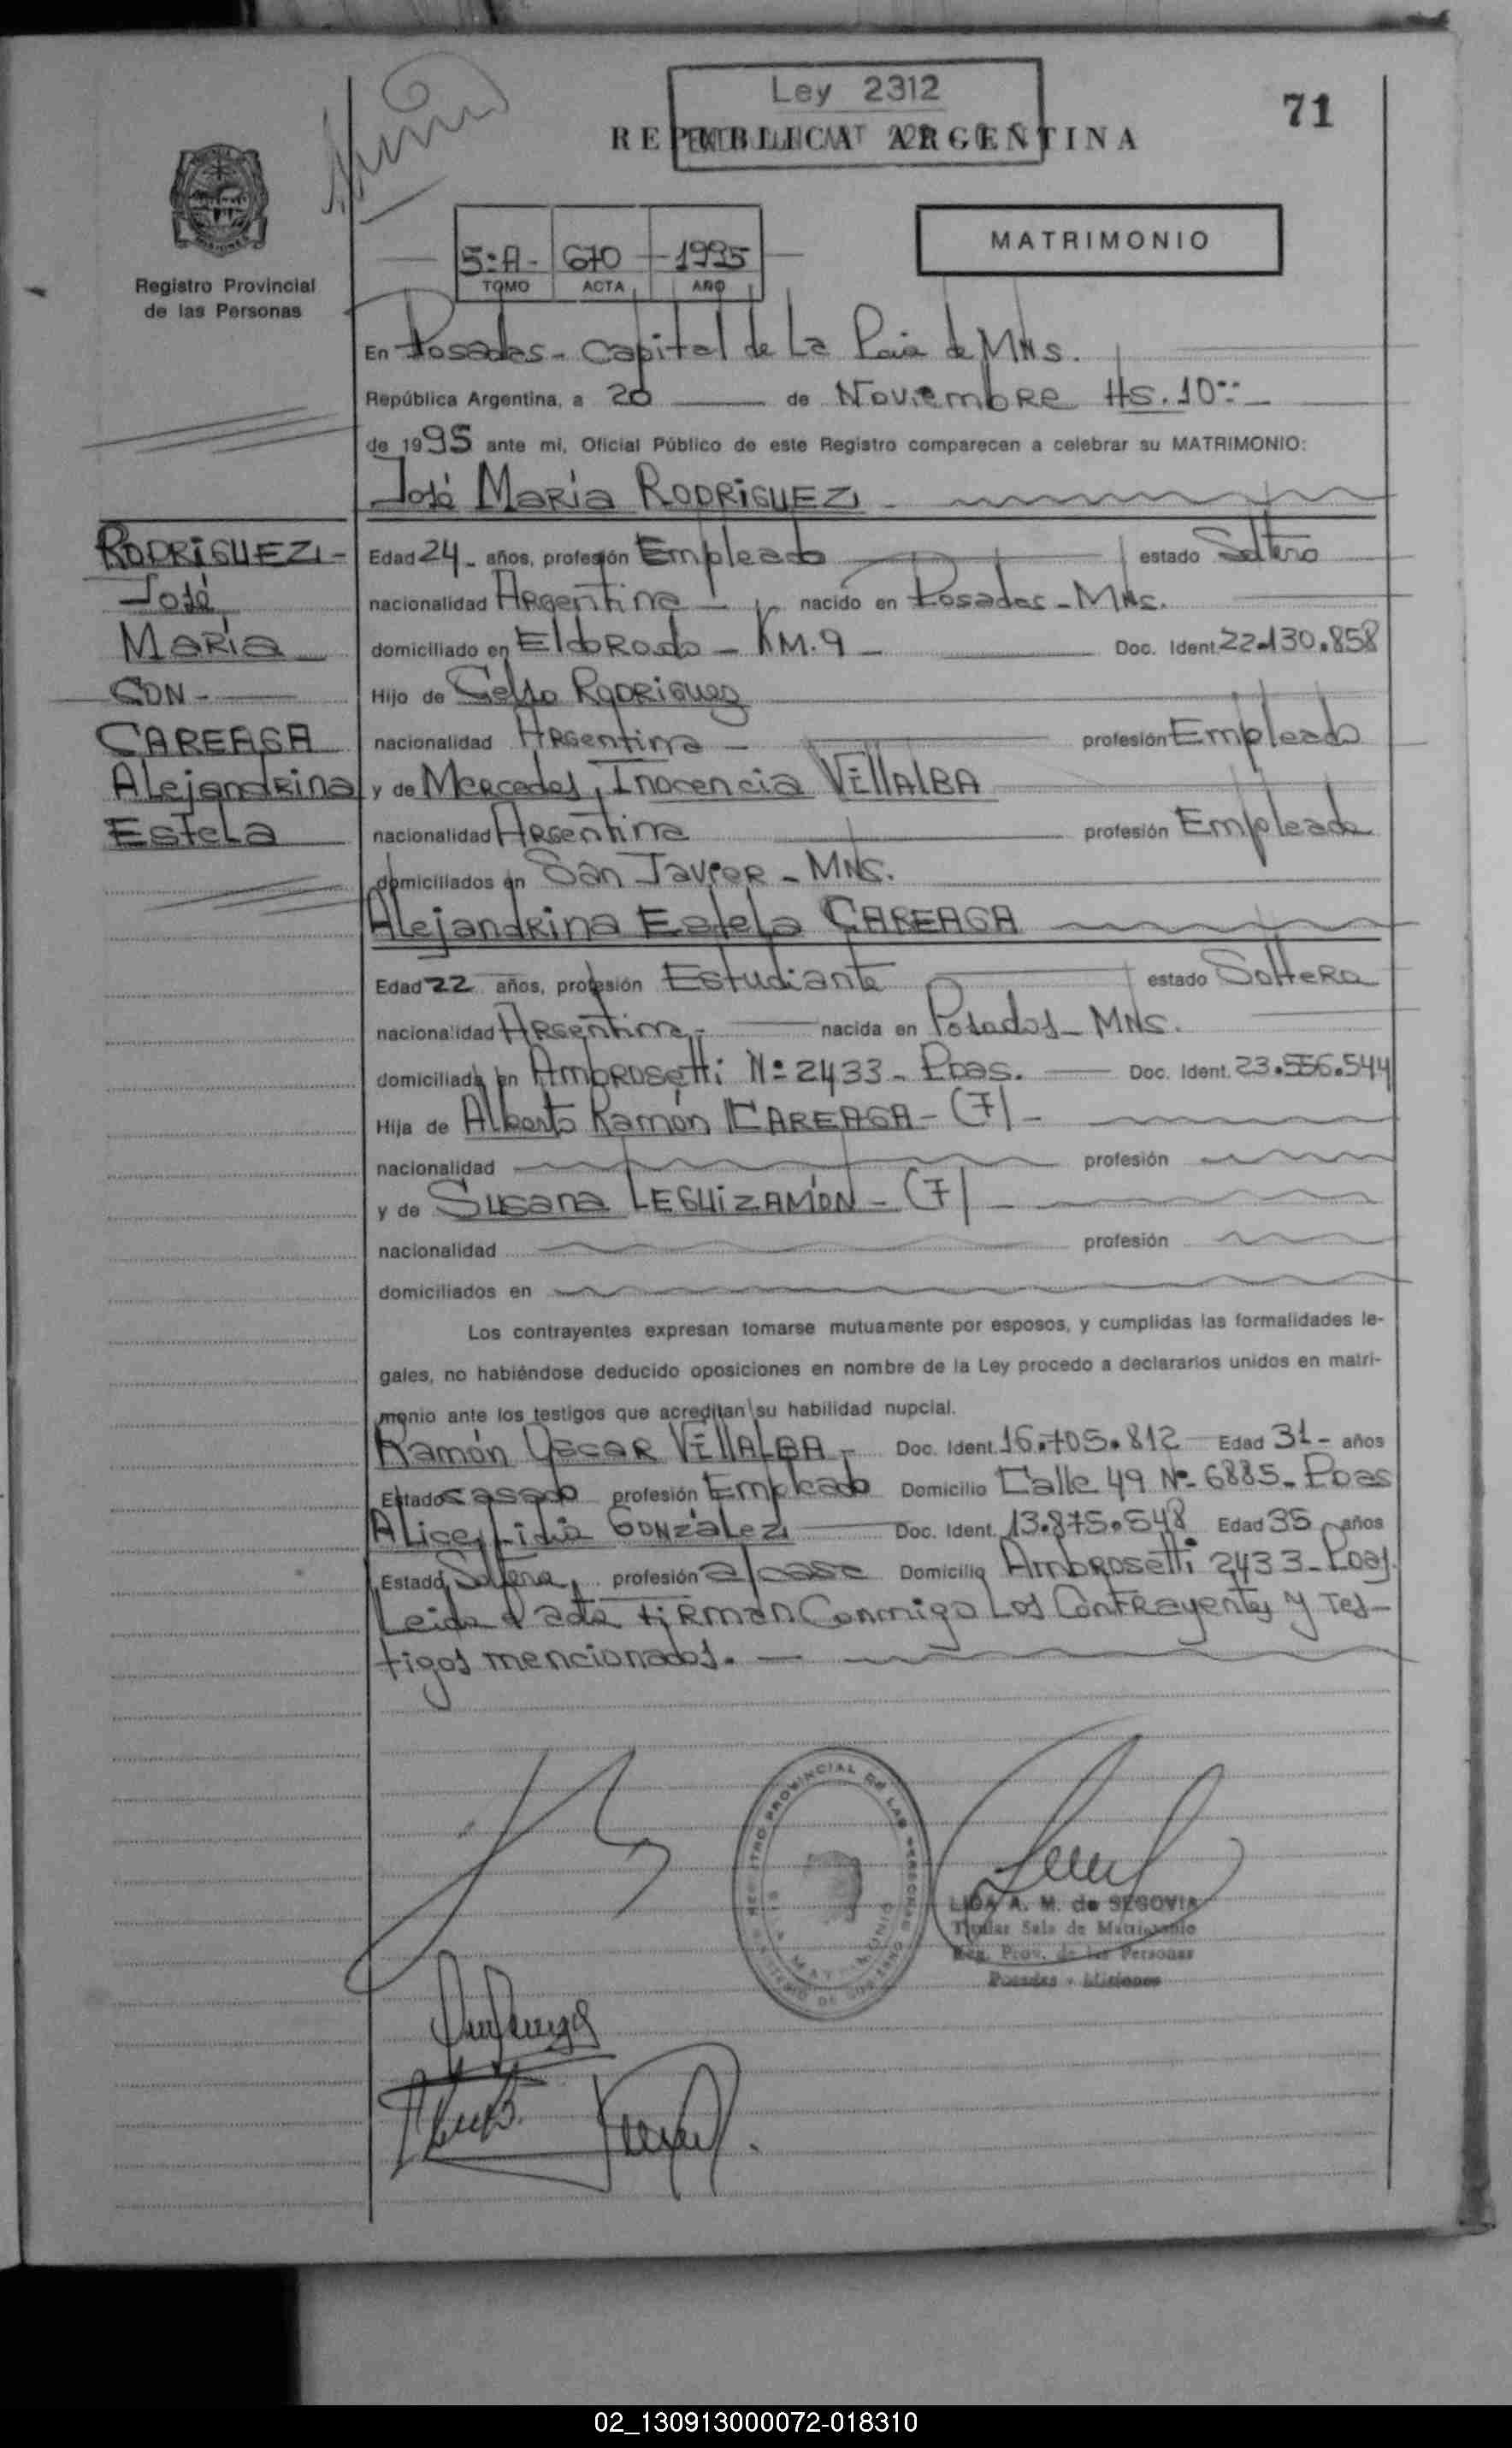 Ley 2312
71
REPUBLICA ARGENTINA
MATRIMONIO
5:A- 670 1995
TOMO ACTA AÑO
Registro Provincial
de las Personas
En Posadas - Capital de La Pcia de MNs.
República Argentina, a 20 de Noviembre Hs. 10:-
de 1995 ante mi, Oficial Público de este Registro comparecen a celebrar su MATRIMONIO:
José María RODRIGUEZ -
RODRIGUEZ -
José
María
CON -
CAREAGA
Alejandrina
Estela
Edad 24 - años, profesión Empleado estado Soltero
nacionalidad Argentina - nacido en Posadas - MNs.
domiciliado en Eldorado - KM. 9 - Doc. Ident. 22.130.858
Hijo de Celso Rodriguez
nacionalidad Argentina - profesión Empleado
y de Mercedes Inocencia VILLALBA
nacionalidad Argentina profesión Empleada
domiciliados en San Javier - MNs.
Alejandrina Estela CAREAGA
Edad 22 años, profesión Estudiante estado Soltera
nacionalidad Argentina - nacida en Posadas - MNs.
domiciliada en Ambrosetti Nº 2433 - Pdas. Doc. Ident. 23.556.544
Hija de Alberto Ramón CAREAGA - (F) -
nacionalidad profesión
y de Susana LEGUIZAMÓN - (F) -
nacionalidad profesión
domiciliados en
Los contrayentes expresan tomarse mutuamente por esposos, y cumplidas las formalidades le-
gales, no habiéndose deducido oposiciones en nombre de la Ley procedo a declararlos unidos en matri-
monio ante los testigos que acreditan su habilidad nupcial.
Ramón Oscar VILLALBA - Doc. Ident. 16.705.812 Edad 31 - años
Estado casado profesión Empleado Domicilio Calle 49 Nº 6885 - Pdas
Alice Lidia González Doc. Ident. 13.875.548 Edad 35 años
Estado Soltera, profesión a/casa Domicilio Ambrosetti 2433 - Pdas.
Leida el acta firman conmigo Los Contrayentes y Tes-
tigos mencionados. -
REGISTRO PROVINCIAL DE LAS PERSONAS
LIDA A. M. de SEGOVIA
Titular Sala de Matrimonio
Reg. Prov. de las Personas
Posadas - Misiones
02_130913000072-018310